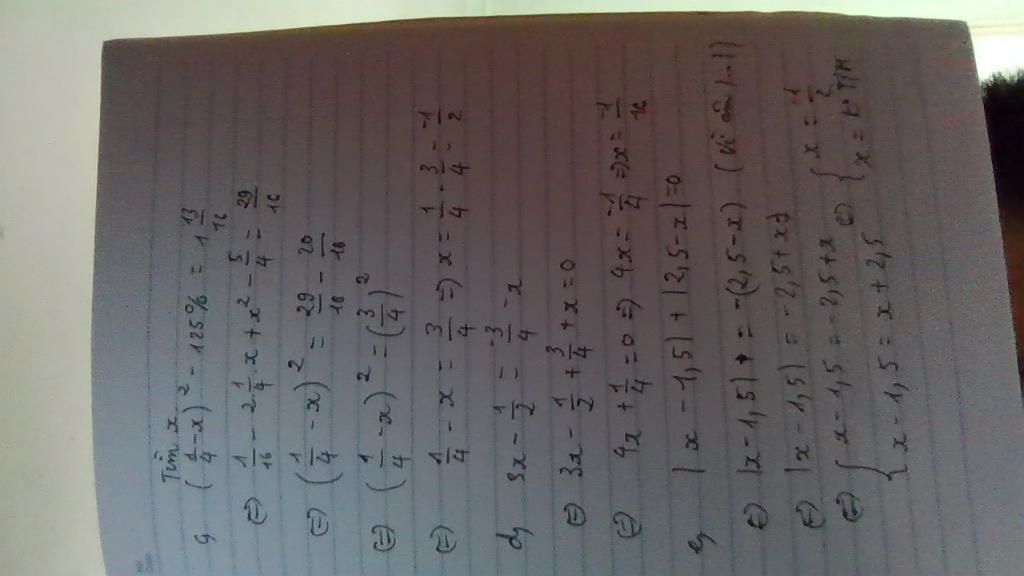 Tìm x
c, (1/4 - x)² - 125% = 1 13/16
(=) 1/16 - 2 1/4 . x + x² - 5/4 = 29/16
(=) (1/4 - x)² = 29/16 - 20/16
(=) (1/4 - x)² = (3/4)²
(=) 1/4 - x = 3/4 => x = 1/4 - 3/4 = -1/2
d, 3x - 1/2 = -3/4 - x
(=) 3x - 1/2 + 3/4 + x = 0
(=) 4x + 1/4 = 0 => 4x = -1/4 => x = -1/16
e, |x - 1,5| + |2,5 - x| = 0
(=) |x - 1,5| = -(2,5 - x) (Vì
(=) |x - 1,5| = -2,5 + x
(=) { x - 1,5 = -2,5 + x (=) { x = 1/2
{ x - 1,5 = x + 2,5 { x = ko T/M